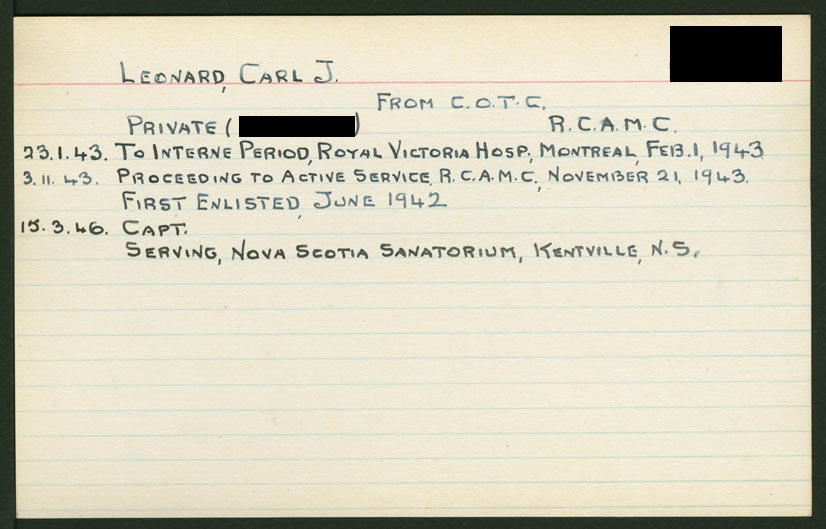 LEONARD, CARL J.
FROM C.O.T.C.
PRIVATE ( ) R.C.A.M.C.
23.1.43. TO INTERNE PERIOD, ROYAL VICTORIA HOSP., MONTREAL, FEB.1, 1943
3.11.43. PROCEEDING TO ACTIVE SERVICE, R.C.A.M.C., NOVEMBER 21, 1943.
FIRST ENLISTED, JUNE 1942
15.3.46. CAPT.
SERVING, NOVA SCOTIA SANATORIUM, KENTVILLE, N.S.